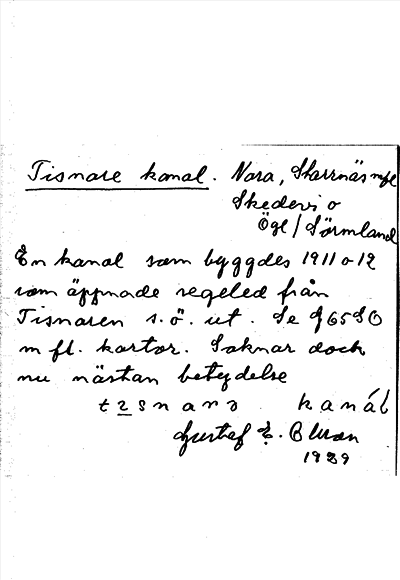 Tisnare kanal. Nora, Skarrnäs mfl
Skedevi o
Ögl/Sörmland
En kanal som byggdes 1911 o 12
som öppnade segeled från
Tisnaren s.ö. ut. Se J65SO
m fl. kartor. Saknar dock
nu nästan betydelse
kanál
Gustaf E. Blman
1989